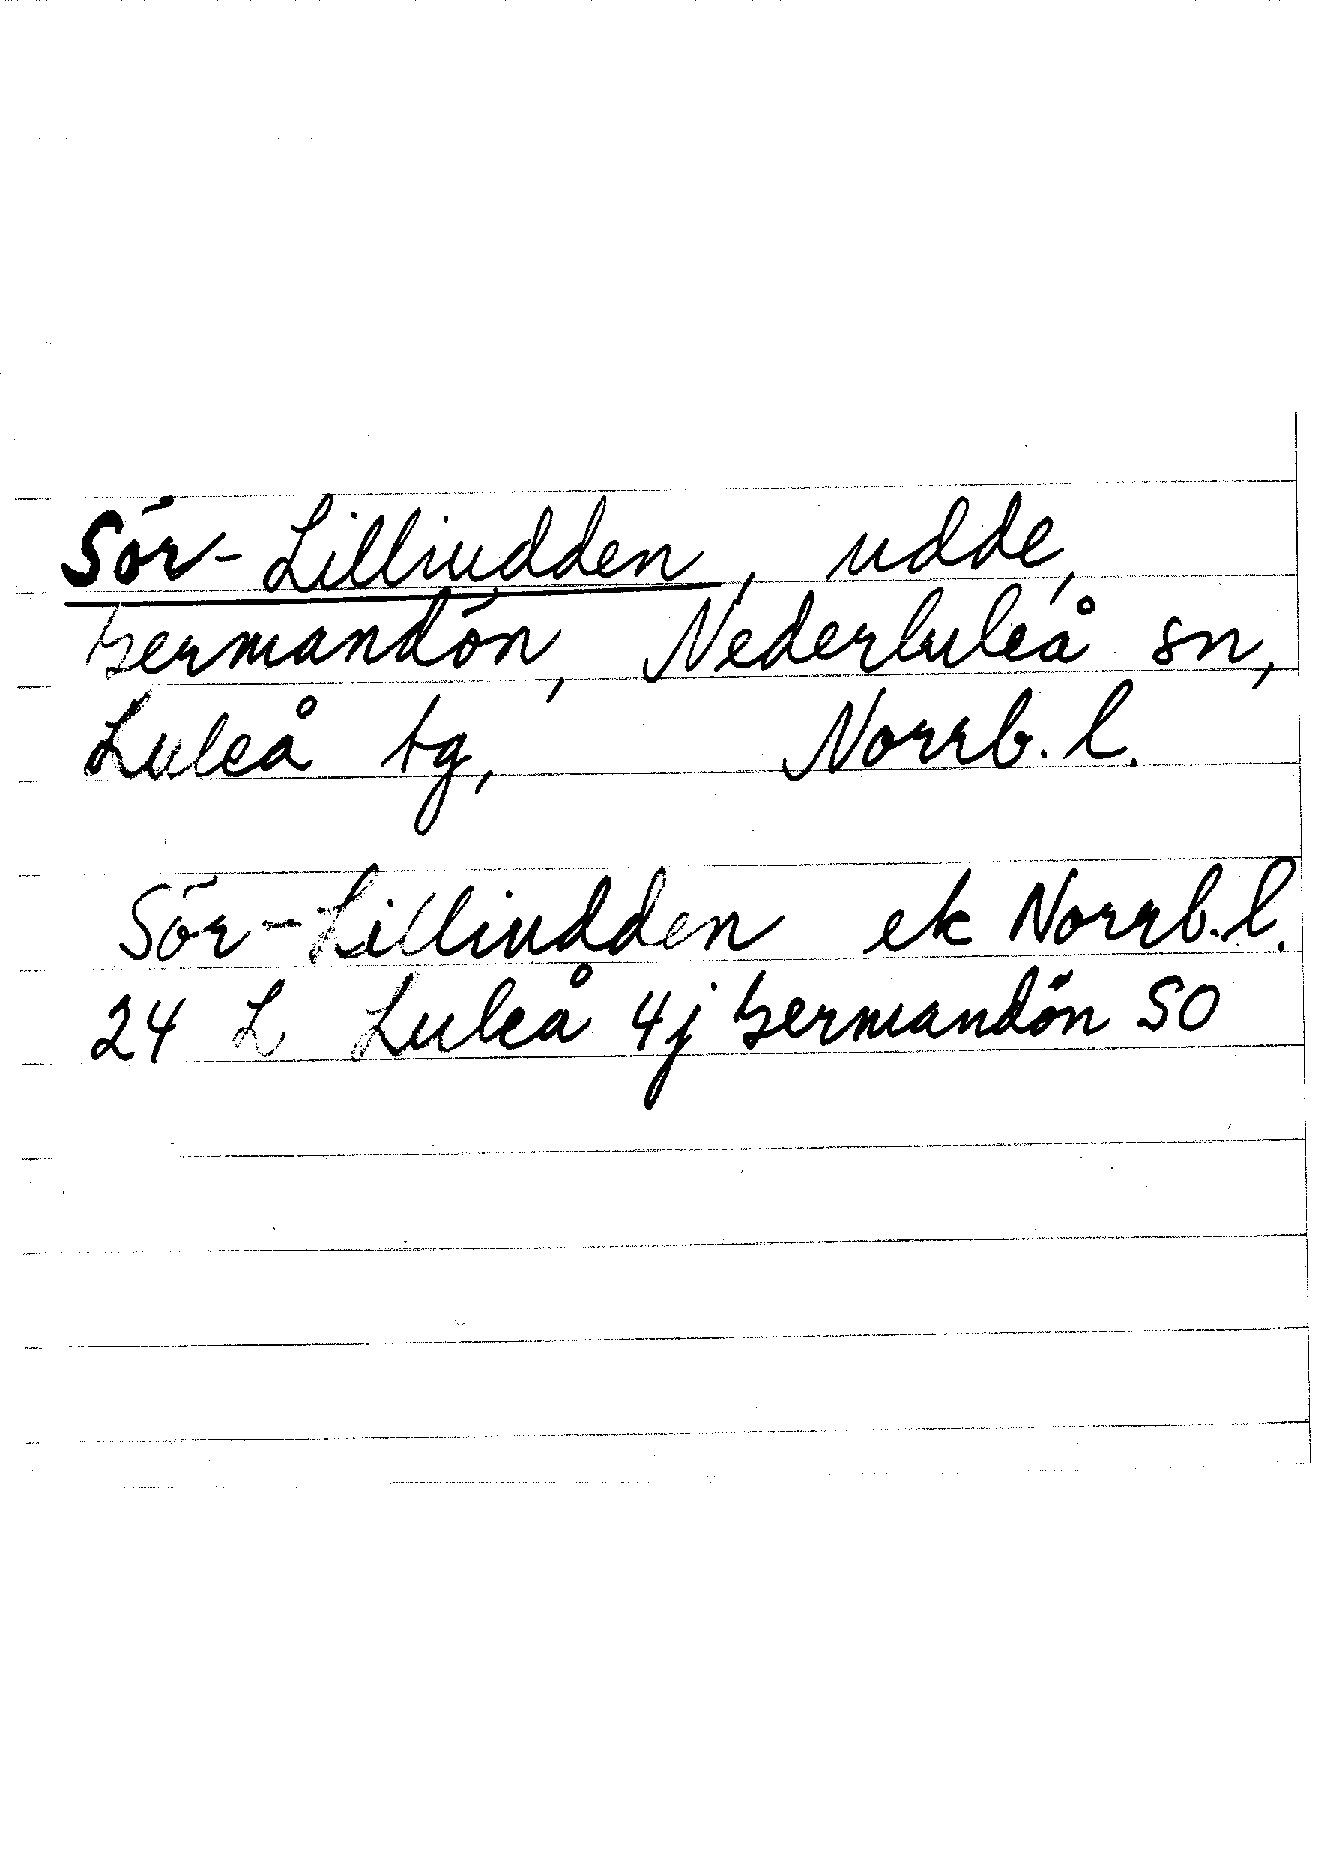 Sör-Lilliudden, udde,
Germandön, Nederluleå sn,
Luleå tg, Norrb. l.
Sör-Lilliudden ek Norrb. l.
24 L Luleå 4j Germandön SO